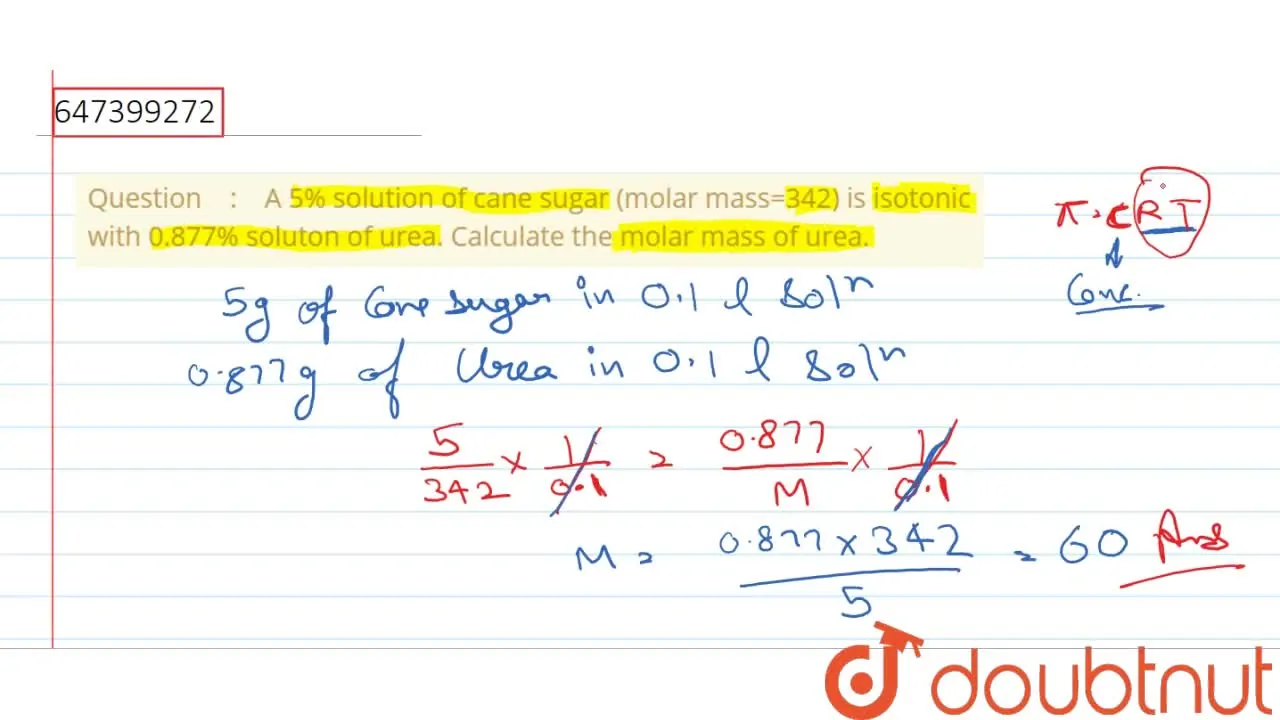 647399272
Question : A 5% solution of cane sugar (molar mass=342) is isotonic
with 0.877% soluton of urea. Calculate the molar mass of urea.
π = CRT
Conc.
5g of Cane sugar in 0.1 l Solⁿ
0.877g of Urea in 0.1 l Solⁿ
5/342 × 1/0.1 = 0.877/M × 1/0.1
M = 0.877 × 342 / 5 = 60 Ans
doubtnut